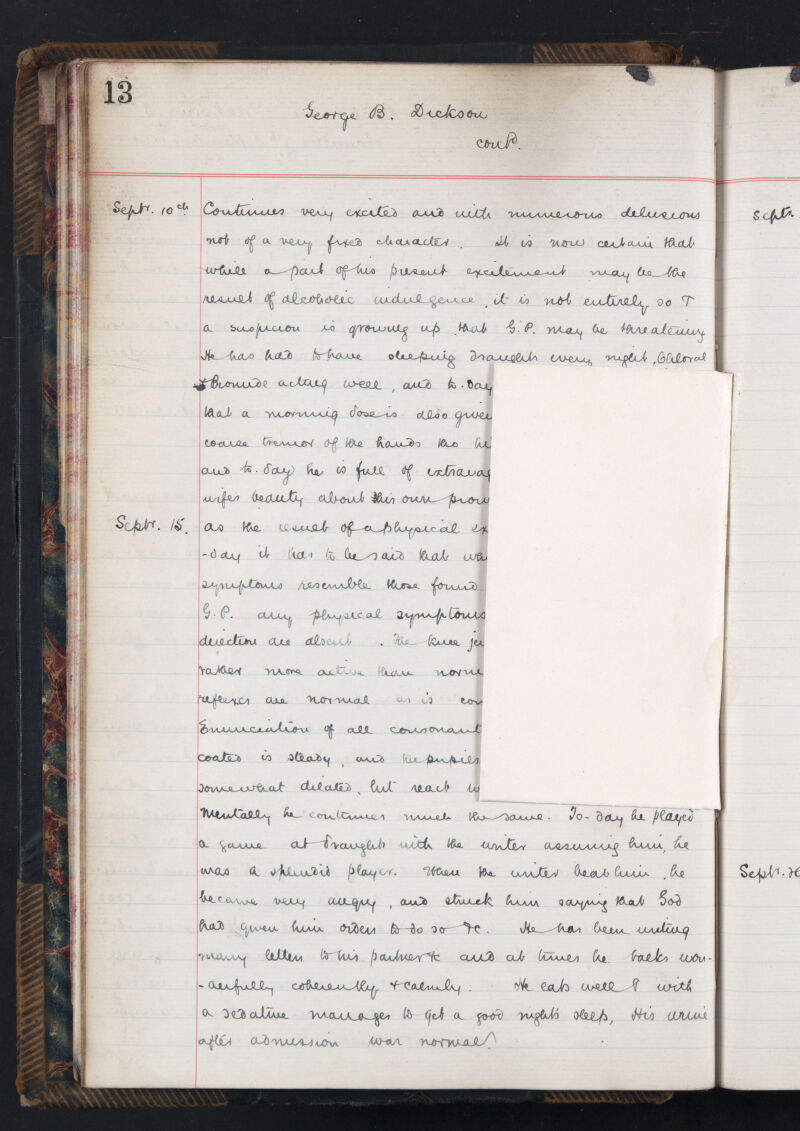 13
George B. Dickson
contd.
Septr. 10th Continues very excited and with numerous delusions
not of a very fixed character. It is now certain that
while a part of his present excitement may be the
result of alcoholic indulgence, it is not entirely so &
a suspicion is growing up that G.P. may be threatening
He has had to have sleeping draughts every night, Chloral
& Bromide acting well, and to-day
that a morning dose is also given
coarse tremor of the hands tho
and to-day he is full of
wifes beauty about his own
Septr. 15. as the result of a physical
-day it has to be said that
symptoms resemble those found
G.P. any physical symptoms
direction are absent. The knee
rather more active than
reflexes are normal as is
Enunciation of all
coated is steady, and the pupils
somewhat dilated, but react
Mentally he continues much the same. To-day he played
a game at draughts with the writer assuming him, he
was a splendid player. When the writer beat him, he
became very angry, and struck him saying that God
had given him orders to do so &c. He has been writing
many letters to his partner &c and at times he talks won-
-derfully coherently & calmly. He eats well & with
a sedative manages to get a good nights sleep, His urine
after admission was normal.
Septr.
Septr.